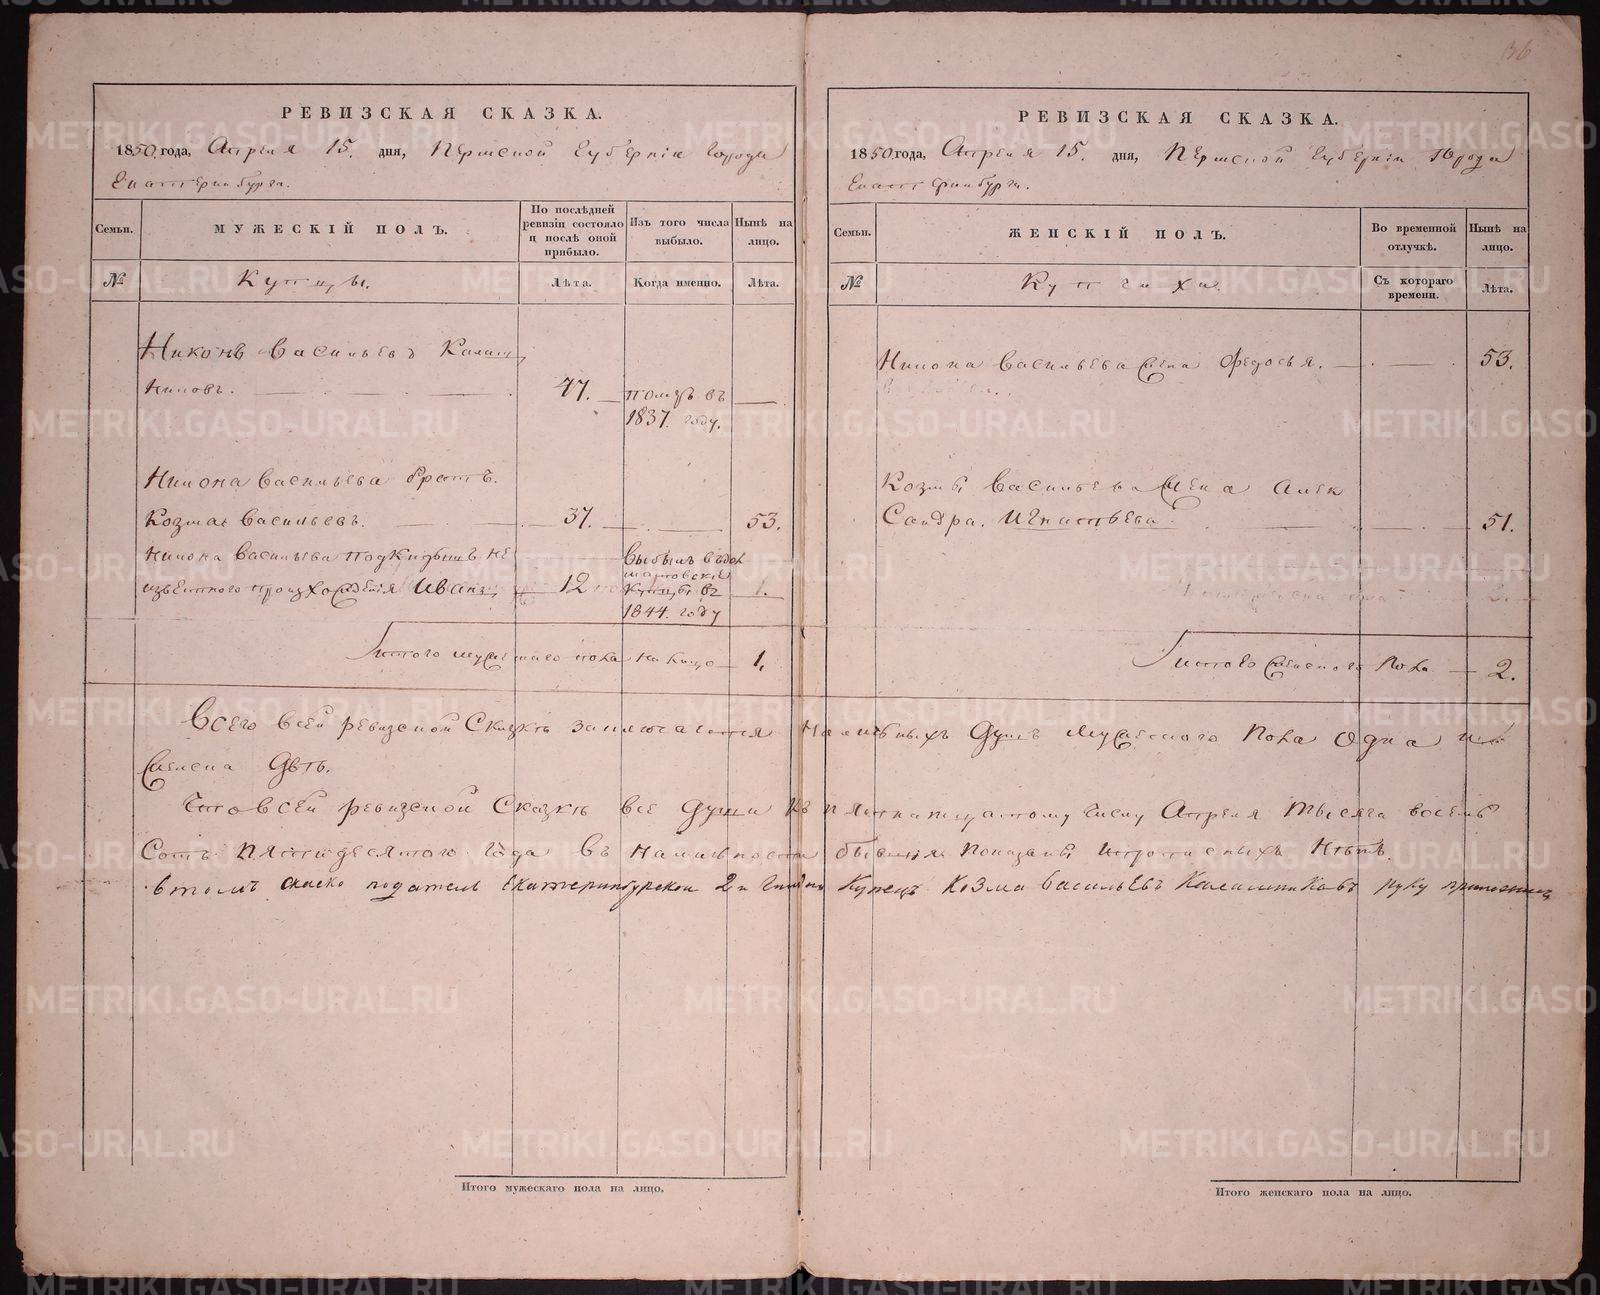 36
РЕВИЗСКАЯ СКАЗКА.
1850 года, Апреля 15. дня, Пермской Губернiи города
Екатеринбурга.
Семьи.
МУЖЕСКIЙ ПОЛЪ.
По послѣдней ревизiи состояло и послѣ оной прибыло.
Изъ того числа выбыло.
Нынѣ на лицо.
№
Купцы.
Лѣта.
Когда именно.
Лѣта.
Никонъ Васильевъ Калаш
никовъ. 47. помръ въ
1837. году.
Никона Васильева братъ.
Козма Васильевъ. 37. 53.
Никона Васильева подкидышъ не
извѣстнаго происхожденiя Иванъ, 12
Выбылъ въ
купцы въ
1844. году
Итого мужескаго пола на лицо 1.
РЕВИЗСКАЯ СКАЗКА.
1850 года, Апреля 15. дня, Пермской Губернiи Города
Екатеринбурга.
Семьи.
ЖЕНСКIЙ ПОЛЪ.
Во временной отлучкѣ.
Нынѣ на лицо.
№
Купчихи.
Съ котораго времени.
Лѣта.
Никона Васильева жена Федосья. 53.
Козмы Васильева жена Алек
Сандра. Игнатьева. 51.
Итого женскаго пола 2.
Всего всей ревизской Сказкѣ заключается Наличныхъ Душъ Мужескаго Пола Одна и
Женска Двѣ.
Что всей ревизской Сказкѣ все души къ пятнатцатому числу Апреля тысяча восемъ
Сотъ пятидесятого года въ наличности бывшiя показаны и прописныхъ Нѣтъ.
в томъ скаско податель Екатеринбурскои 2й Гилдiи Купецъ Козма Васильевъ Калашниковъ руку приложилъ
Итого мужескаго пола на лицо.
Итого женскаго пола на лицо.
METRIKI.GASO-URAL.RU